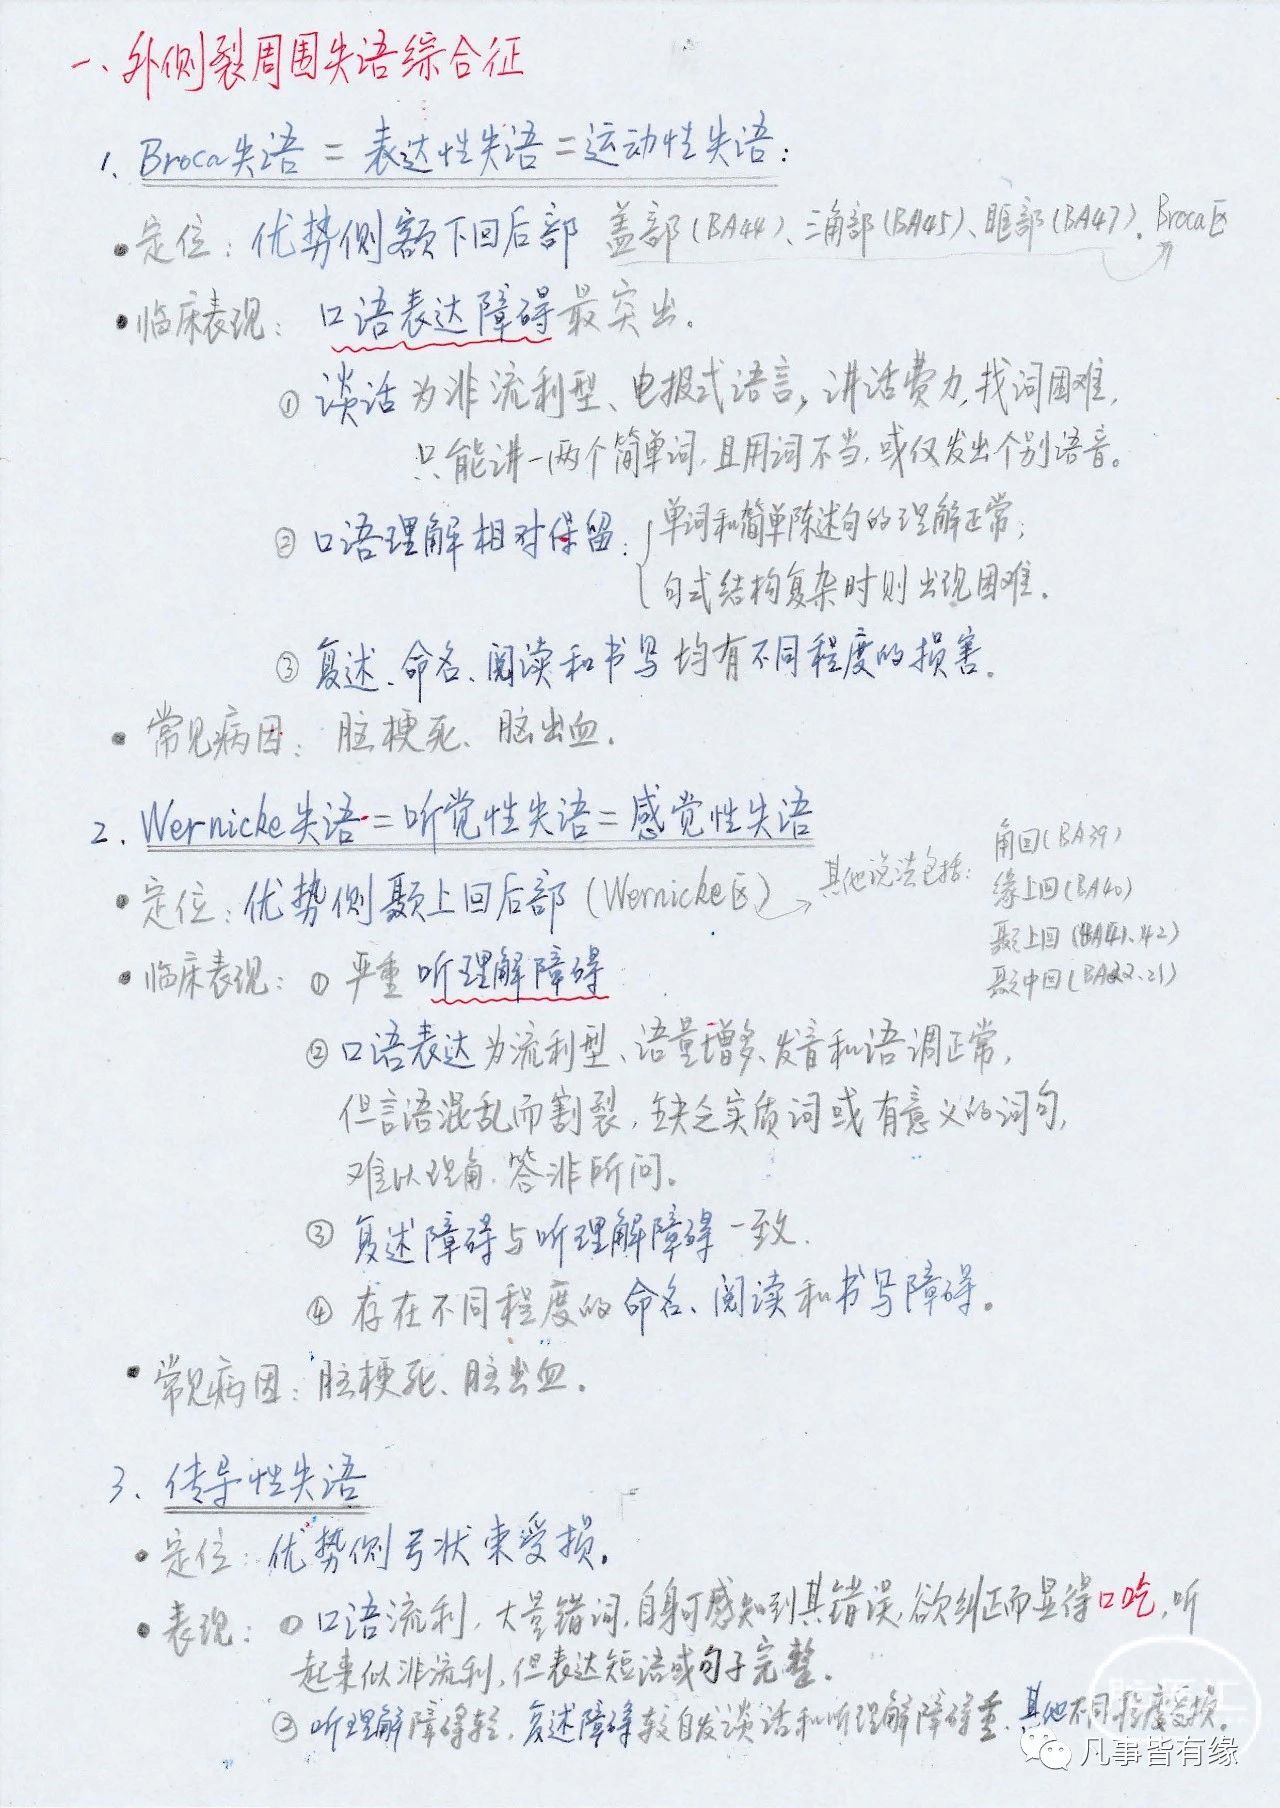 一、外侧裂周围失语综合征
1、Broca失语 = 表达性失语 = 运动性失语:
• 定位: 优势侧额下回后部 盖部(BA44)、三角部(BA45)、眶部(BA47)。Broca区
• 临床表现: 口语表达障碍最突出。
① 谈话为非流利型、电报式语言,讲话费力,找词困难,
只能讲一两个简单词,且用词不当,或仅发出个别语音。
② 口语理解相对保留: 单词和简单陈述句的理解正常;
句式结构复杂时则出现困难。
③ 复述、命名、阅读和书写均有不同程度的损害。
• 常见病因: 脑梗死、脑出血。
2、Wernicke失语 = 听觉性失语 = 感觉性失语
• 定位: 优势侧颞上回后部 (Wernicke区) 其他说法包括:
角回(BA39)
缘上回(BA40)
颞上回(BA41、42)
颞中回(BA22、21)
• 临床表现: ① 严重听理解障碍
② 口语表达为流利型、语量增多、发音和语调正常,
但言语混乱而割裂,缺乏实质词或有意义的词句,
难以理解,答非所问。
③ 复述障碍与听理解障碍一致.
④ 存在不同程度的命名、阅读和书写障碍。
• 常见病因: 脑梗死、脑出血。
3、传导性失语
• 定位: 优势侧弓状束受损。
• 表现: ① 口语流利,大量错词,自身可感知到其错误,欲纠正而显得口吃,听
起来似非流利,但表达短语或句子完整。
② 听理解障碍轻,复述障碍较自发谈话和听理解障碍重,其他不同程度受损。
凡事皆有缘